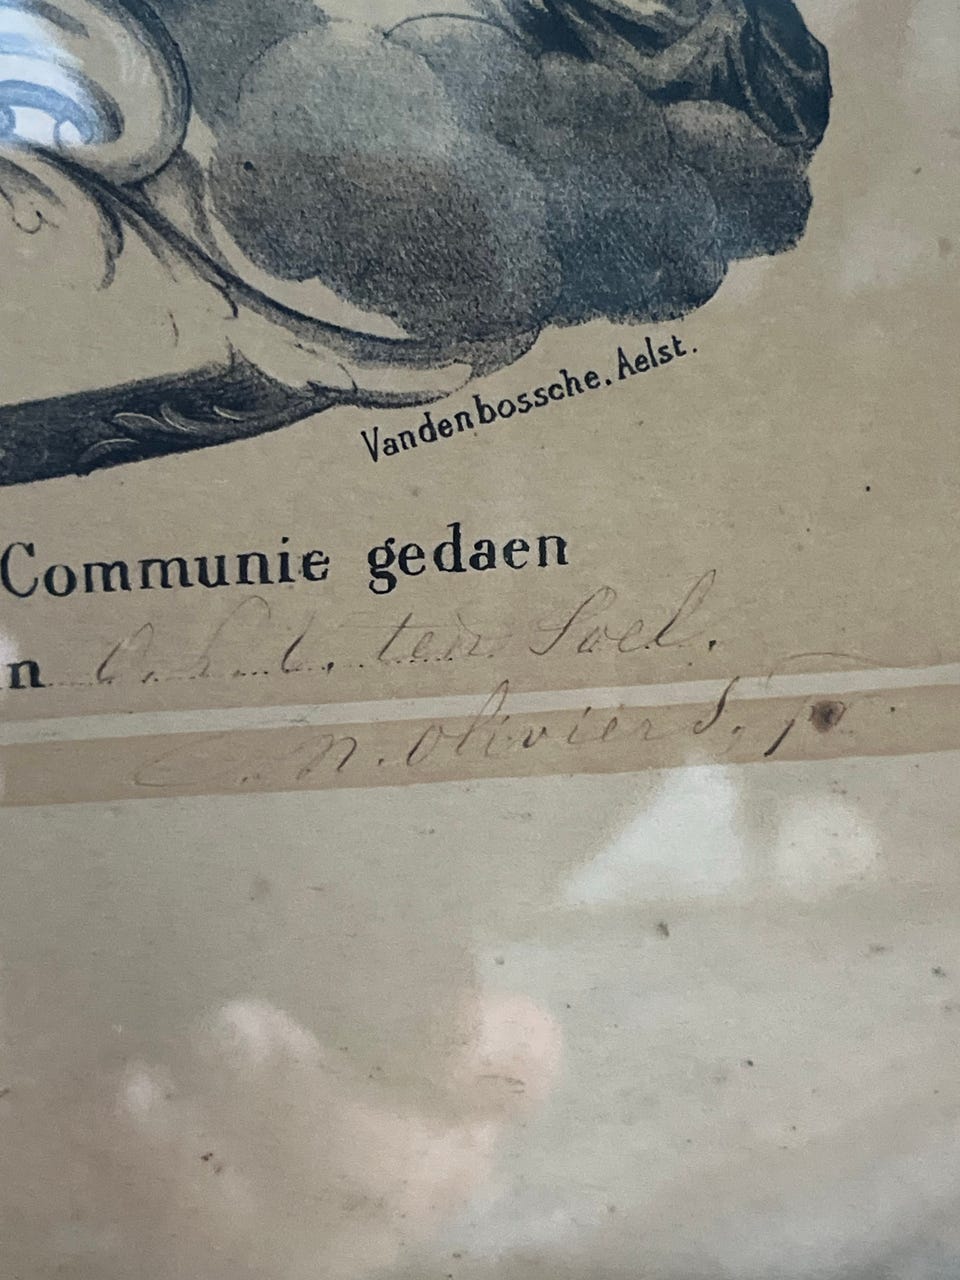 Vandenbossche. Aelst.
Communie gedaen
n O. L. V. ten Poel.
C. N. Oliviers, pr.